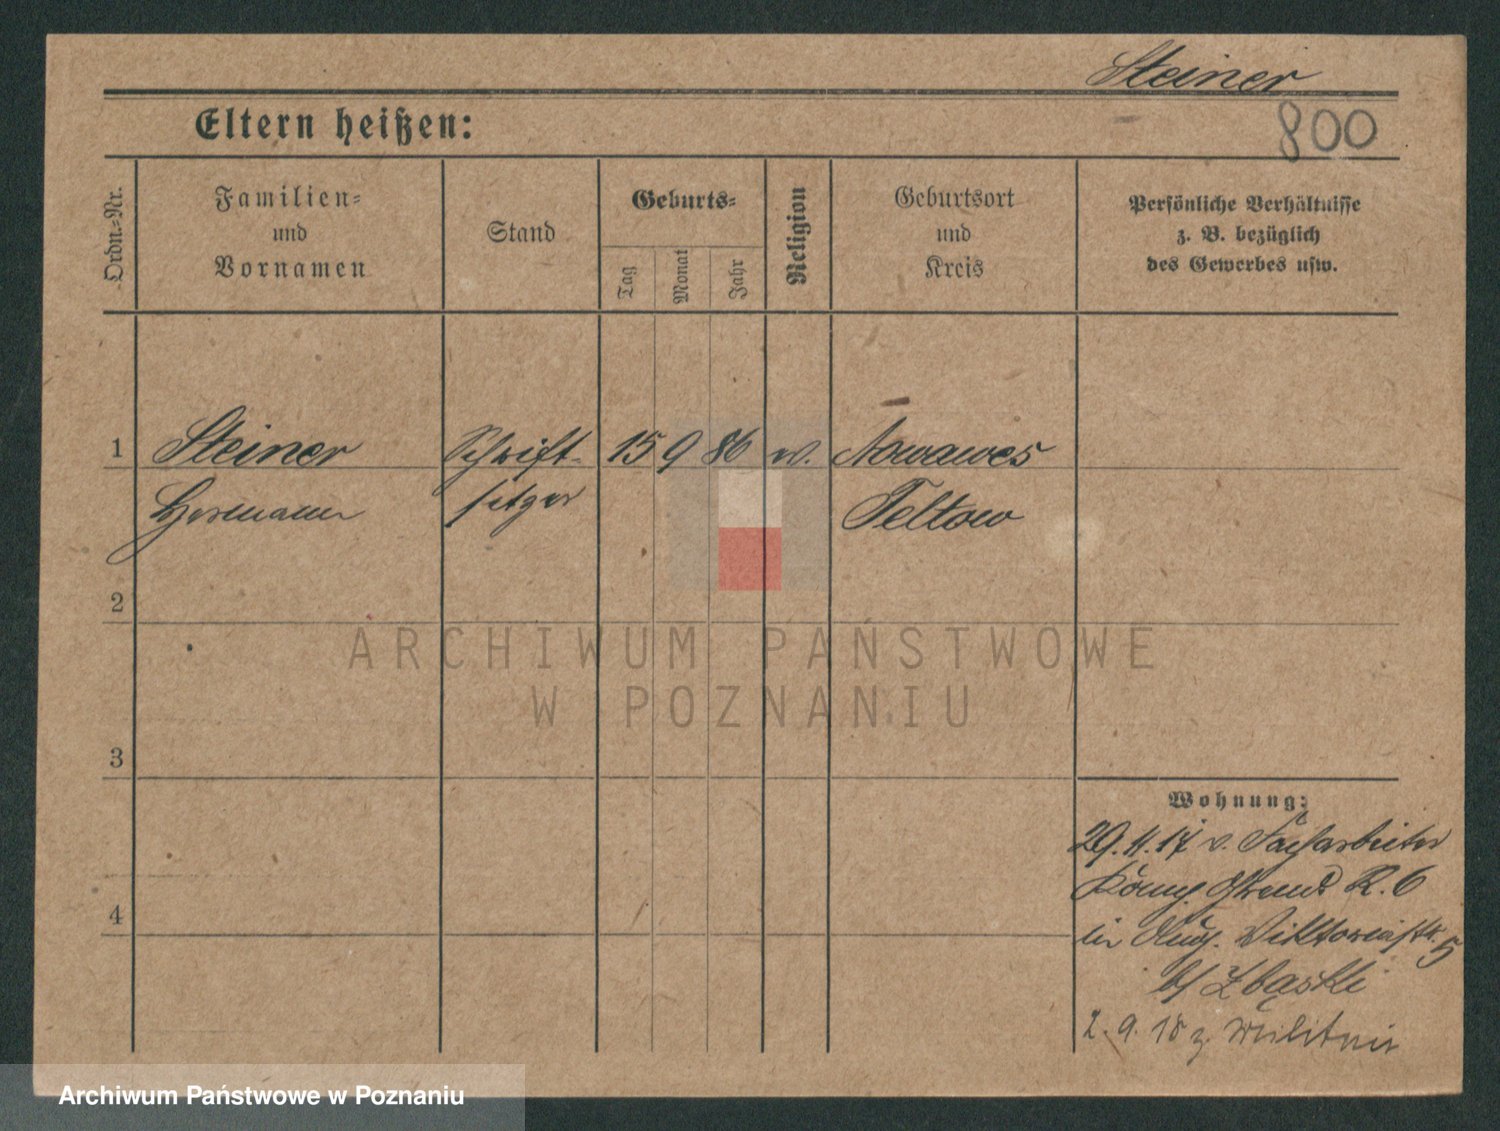 Steiner
Eltern heißen:
800
Ordn.-Nr.
Familien-
und
Vornamen
Stand
Geburts-
Tag
Monat
Jahr
Religion
Geburtsort
und
Kreis
Persönliche Verhältnisse
z. B. bezüglich
des Gewerbes usw.
1 Steiner Schrift- 15 9 86 Nowawes
Hermann setzer Teltow
2
3
4
Wohnung:
29.11.17 v. Facharbeiter
R. 6
in Aug. Viktoriastr. 5
b/ Zbąski
2.9.18 z. Militair
ARCHIWUM PAŃSTWOWE
W POZNANIU
Archiwum Państwowe w Poznaniu